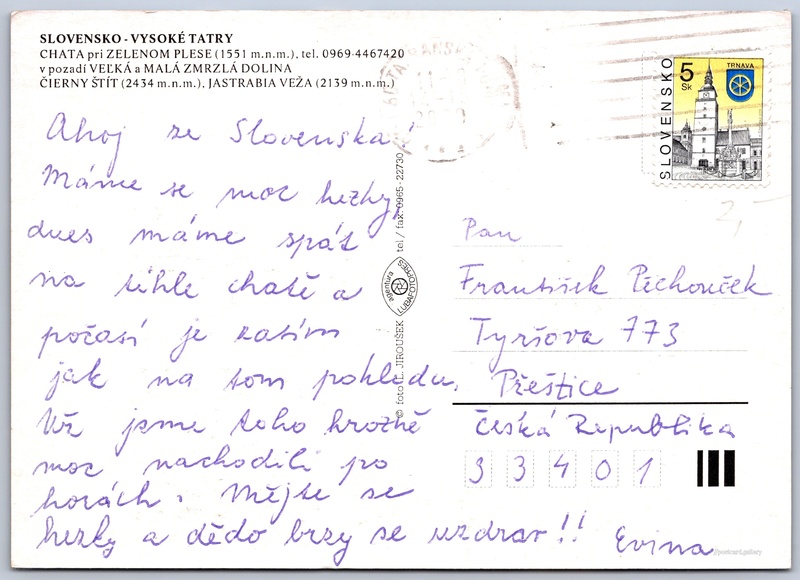 SLOVENSKO - VYSOKÉ TATRY
CHATA pri ZELENOM PLESE (1551 m.n.m.), tel. 0969-4467420
v pozadí VEĽKÁ a MALÁ ZMRZLÁ DOLINA
ČIERNY ŠTÍT (2434 m.n.m.), JASTRABIA VEŽA (2139 m.n.m.)
Ahoj ze Slovenska!
Máme se moc hezky,
dnes máme spát
na téhle chatě a
počasí je zatím
jak na tom pohledu.
Už jsme toho hrozně
moc nachodili po
horách. Mějte se
hezky a dědo brzy se uzdrav!! Evina
© foto L. JIROUŠEK
agentura
LUBAFOTOPRES
tel / fax: 0965-22730
SLOVENSKO
5 Sk
TRNAVA
2,-
Pan
František Pěchouček
Tyršova 773
Přeštice
Česká Republika
33401
//postcard.gallery